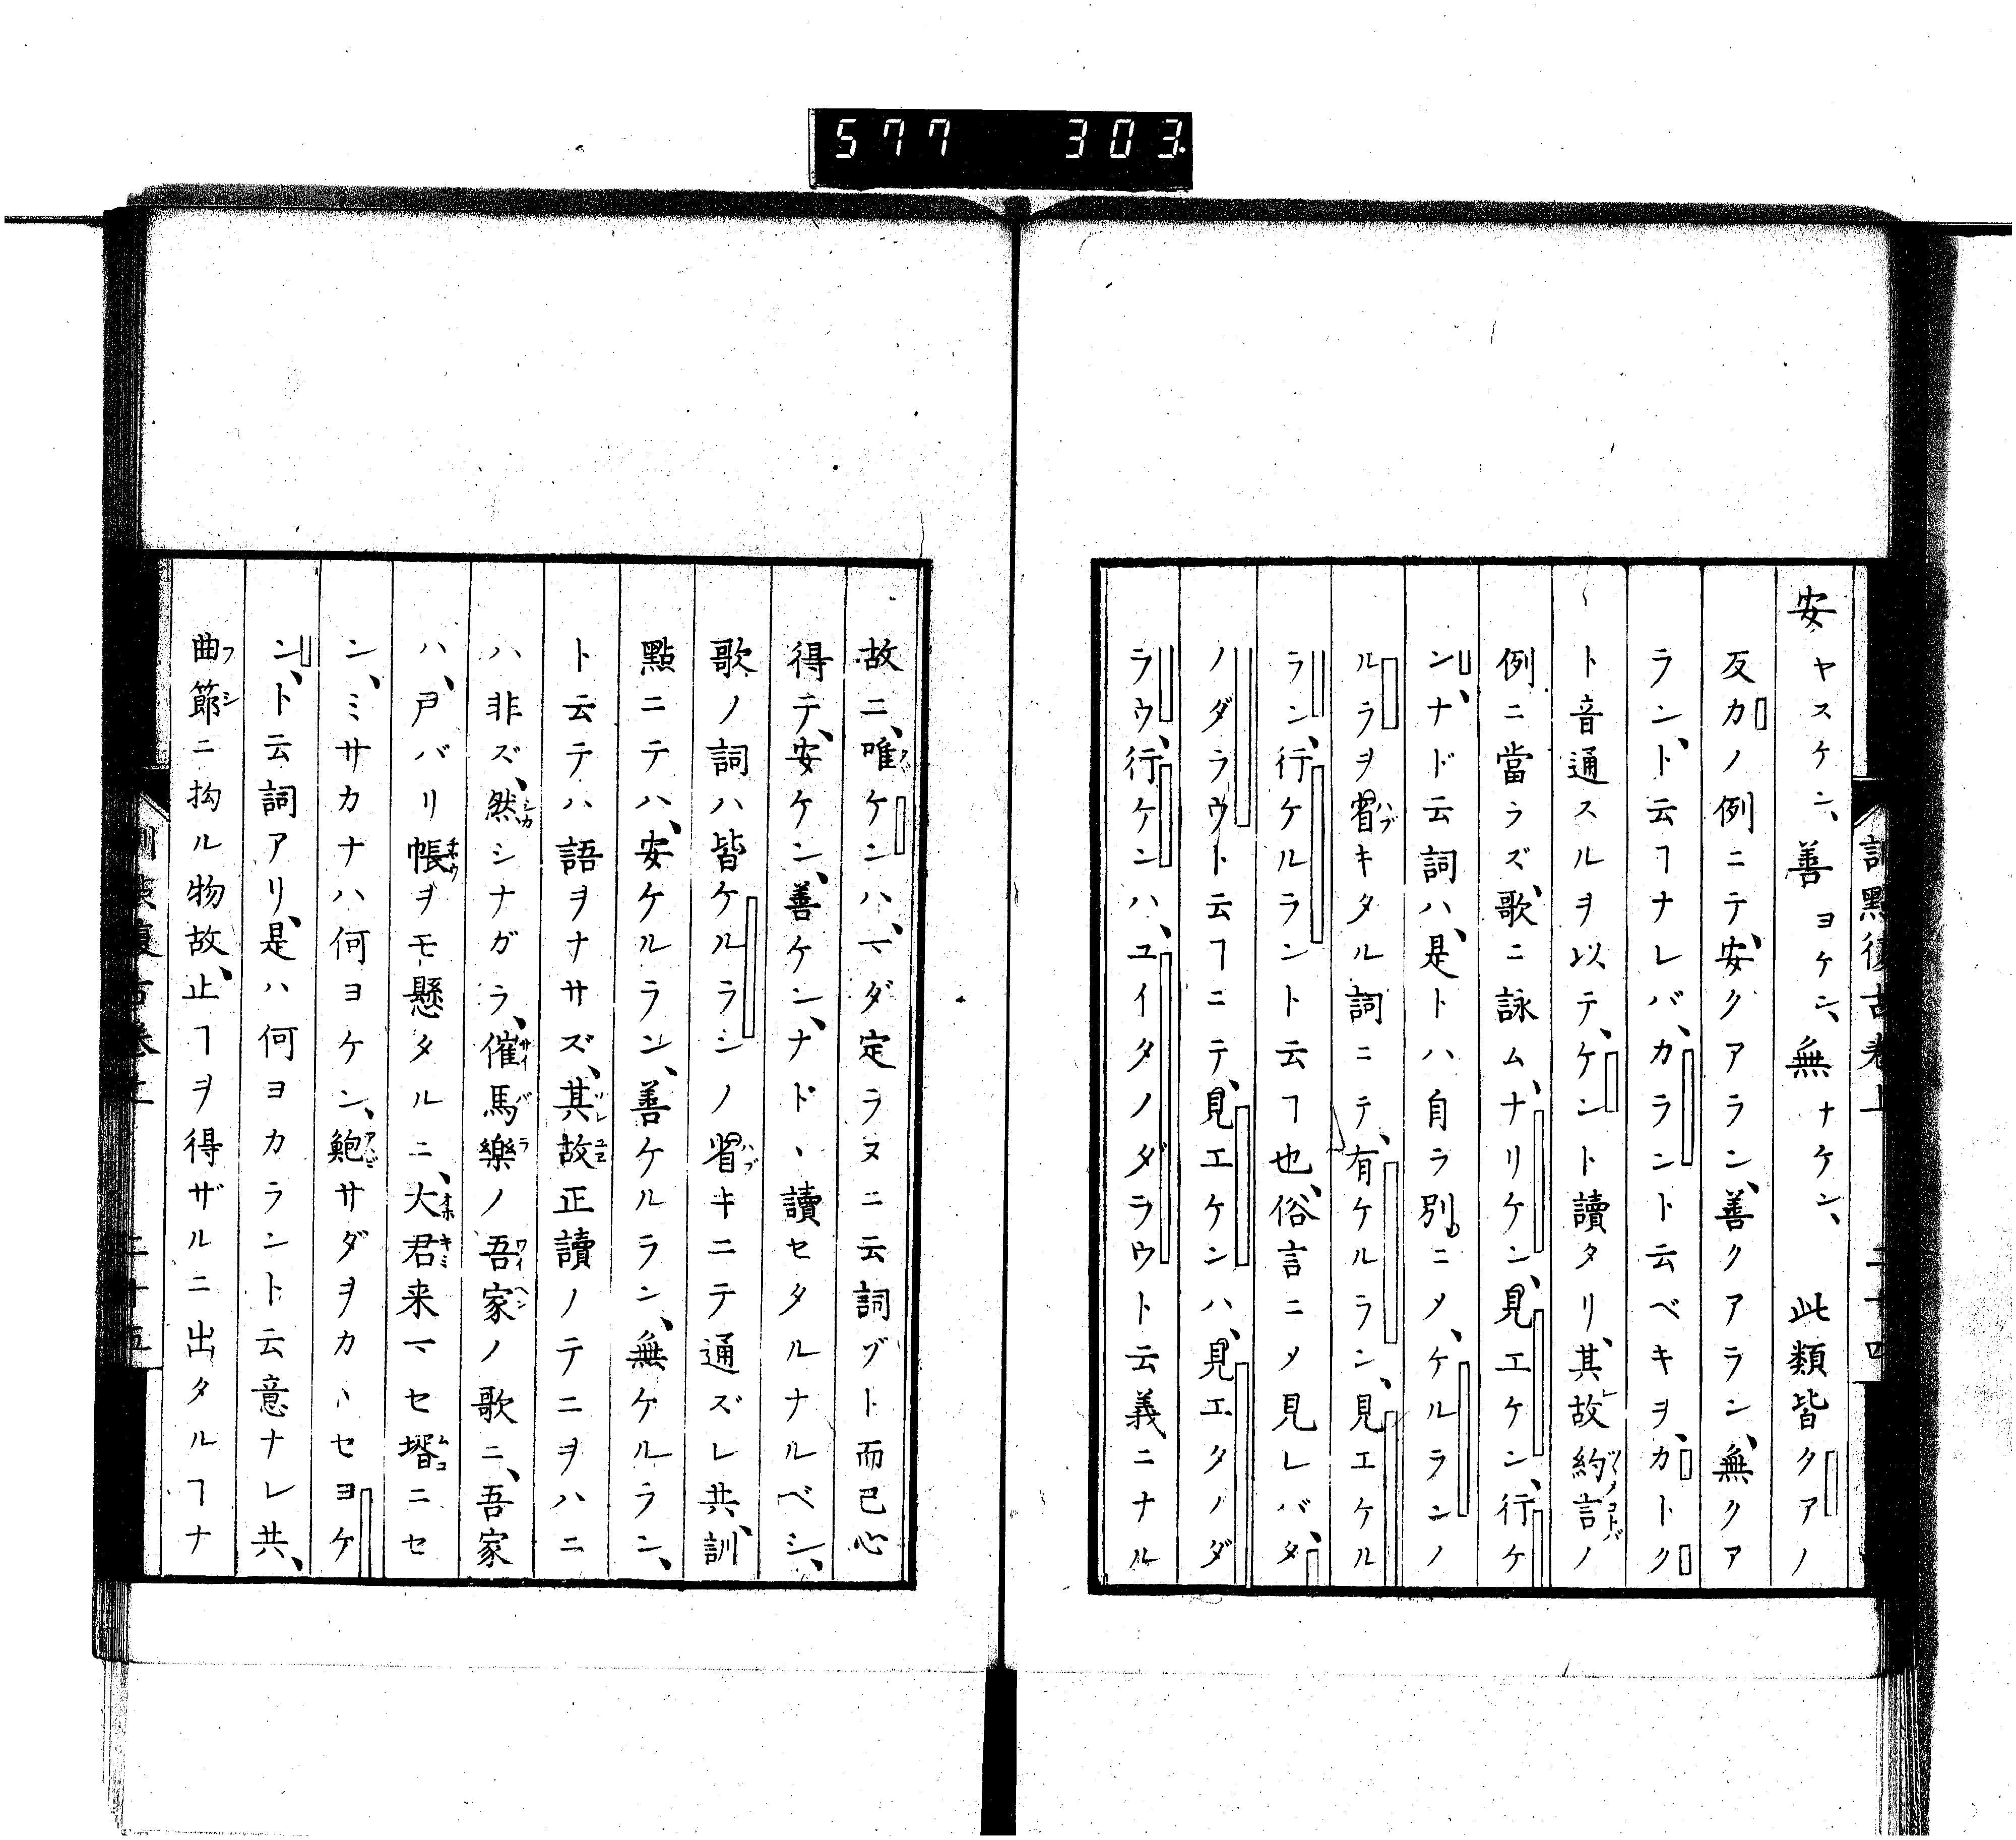 577 303
安ヤスケン、善ヨケン、無ナケン、 此類皆クアノ
反カノ例ニテ、安クアラン、善クアラン、無クア
ラン、ト云ヿナレバ、カラント云ベキヲ、カトク
ト音通スルヲ以テ、ケント讀タリ、其故約言ノ
例ニ當ラズ、歌ニ詠ム、ナリケン、見エケン、行ケ
ン、ナド云詞ハ、是トハ自ラ別ニメ、ケルランノ
ルラヲ省キタル詞ニテ、有ケルラン、見エケル
ラン、行ケルラント云ヿ也、俗言ニメ見レバ、タ
ノダラウト云ヿニテ、見エケンハ、見エタノダ
ラウ、行ケンハ、ユイタノダラウト云義ニナル
故ニ、唯ケンハ、マダ定ラヌニ云詞ゾト而已心
得テ、安ケン、善ケン、ナドヽ讀セタルナルベシ、
歌ノ詞ハ皆ケルラシノ省キニテ通ズレ共、訓
點ニテハ、安ケルラン、善ケルラン、無ケルラン、
ト云テハ語ヲナサズ、其故正讀ノテニヲハニ
ハ非ズ、然シナガラ、催馬樂ノ吾家ノ歌ニ、吾家
ハ、戸バリ帳ヲモ懸タルニ、大君来マセ壻ニセ
ン、ミサカナハ何ヨケン、鮑サダヲカヽセヨケ
ン、ト云詞アリ、是ハ何ヨカラント云意ナレ共、
曲節ニ拘ル物故、止ヿヲ得ザルニ出タルヿナ